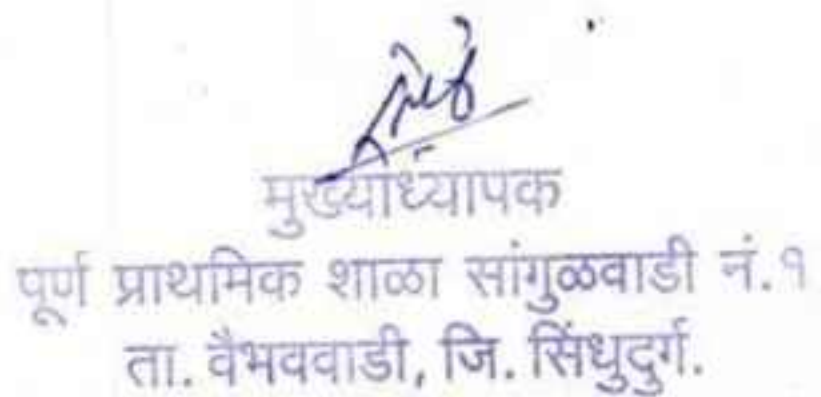 मुख्याध्यापक
पूर्ण प्राथमिक शाळा सांगुळवाडी नं.१
ता. वैभववाडी, जि. सिंधुदुर्ग.